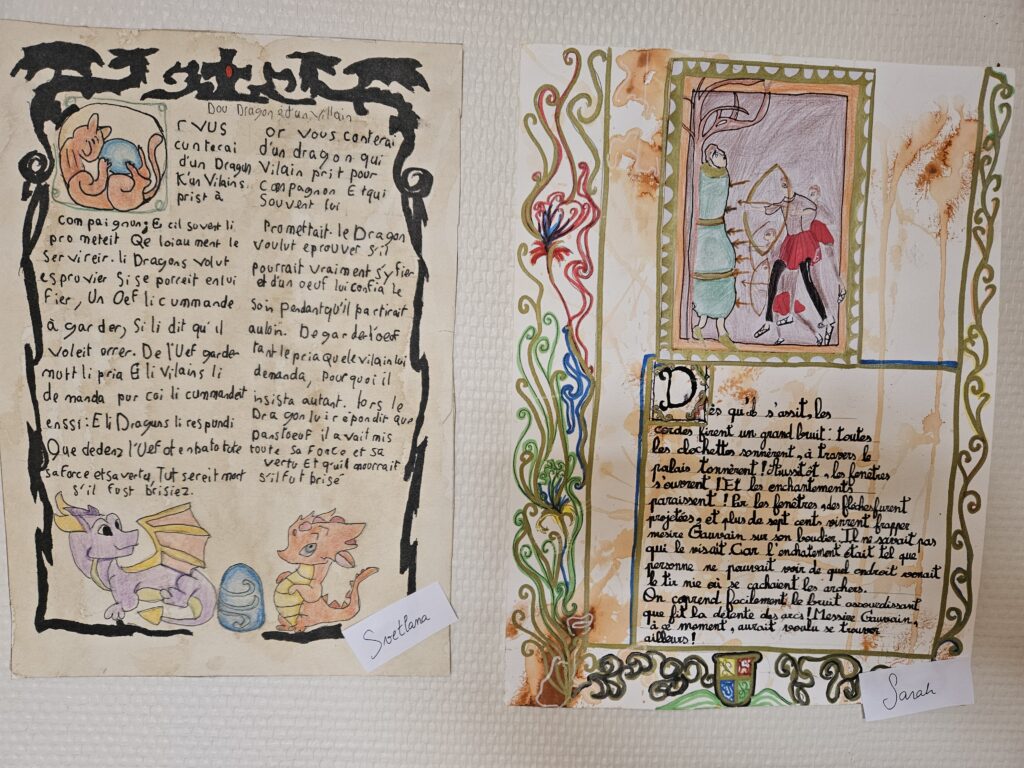 Dou Dragon et d'un Villain
r vus
cunterai
d'un Dragun
K'un Vilains
prist à
compaignon; E cil suvent li
prometeit Qe loiaument le
Servireir. li Dragons volut
esprovier Si se porreit en lui
fier, Un Oef li cummande
à garder, Si li dit qu'il
voleit orrer. De l'Uef garder
mutt li pria E li Vilains li
demanda pur coi li cummandeit
enssi: E li Draguns li respundi
Que dedenz l'Uef ot enbatu tute
sa force et sa vertu, Tut sereit mort
s'il fust brisiez.
or vous conterai
d'un dragon qui
Vilain prit pour
compagnon Et qui
Souvent lui
Promettait. le Dragon
voulut eprouver s'il
pourrait vraiment s'y fier
et d'un oeuf lui confia le
soin pendant qu'il partirait
au loin. De garder l'oeuf
tant le pria que le vilain lui
demanda, Pourquoi il
insista autant. lors le
Dragon lui répondit que
dans l'oeuf il avait mis
toute sa force et sa
vertu Et qu'il mourrait
s'il fut brisé
Svetlana
Dès qu'il s'assit, les
cordes firent un grand bruit : toutes
les clochettes sonnèrent, à travers le
palais tonnèrent ! Aussitôt, les fenêtres
s'ouvrent ! Et les enchantements
paraissent ! Par les fenêtres, des flèches furent
projetées, et plus de sept cents vinrent frapper
mesire Gauvain sur son bouclier. Il ne savait pas
qui le visait Car l'enchatement était tel que
personne ne pouvait voir de quel endroit venait
le tir nie où se cachaient les archers.
On conprend facilement le bruit assourdissant
que fit la détente des arcs ! Messire Gauvain,
à ce moment, aurait voulu se trouver
ailleurs !
Sarah